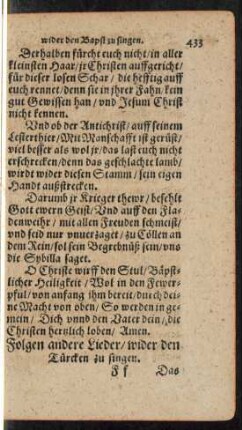 wider den Bapst zu singen. 433
Derhalben fürcht euch nicht/ in aller
kleinsten Haar/ jr Christen auffgericht/
für dieser losen Schar/ die hefftig auff
euch rennet/ denn sie in jhrer Fahn/ kein
gut Gewissen han/ vnd Jesum Christ
nicht kennen.
Vnd ob der Antichrist/ auff seinem
Lesterthier/ Mit Manschafft ist gerüst/
viel besser als wol jr/ das last euch nicht
erschrecken/ denn das geschlachte lamb/
wirdt wider diesen Stamm/ sein eigen
Handt außstrecken.
Darumb jr Krieger thewr/ befehlt
Gott ewern Geist/ Vnd auff den Fla-
denweihr/ mit allen Freuden schmeist/
vnd seid nur vnuerzaget/ zu Cöllen an
dem Rein/ sol sein Begrebnüß sein/ vns
die Sybilla saget.
O Christe wirff den Stul/ Bäpst-
licher Heiligkeit/ Wol in den Fewer-
pful/ von anfang jhm bereit/ durch dei-
ne Macht von oben/ So werden in ge-
mein/ Dich vnnd den Vater dein/ die
Christen hertzlich loben/ Amen.
Folgen andere Lieder/ wider den
Türcken zu singen.
F f Das